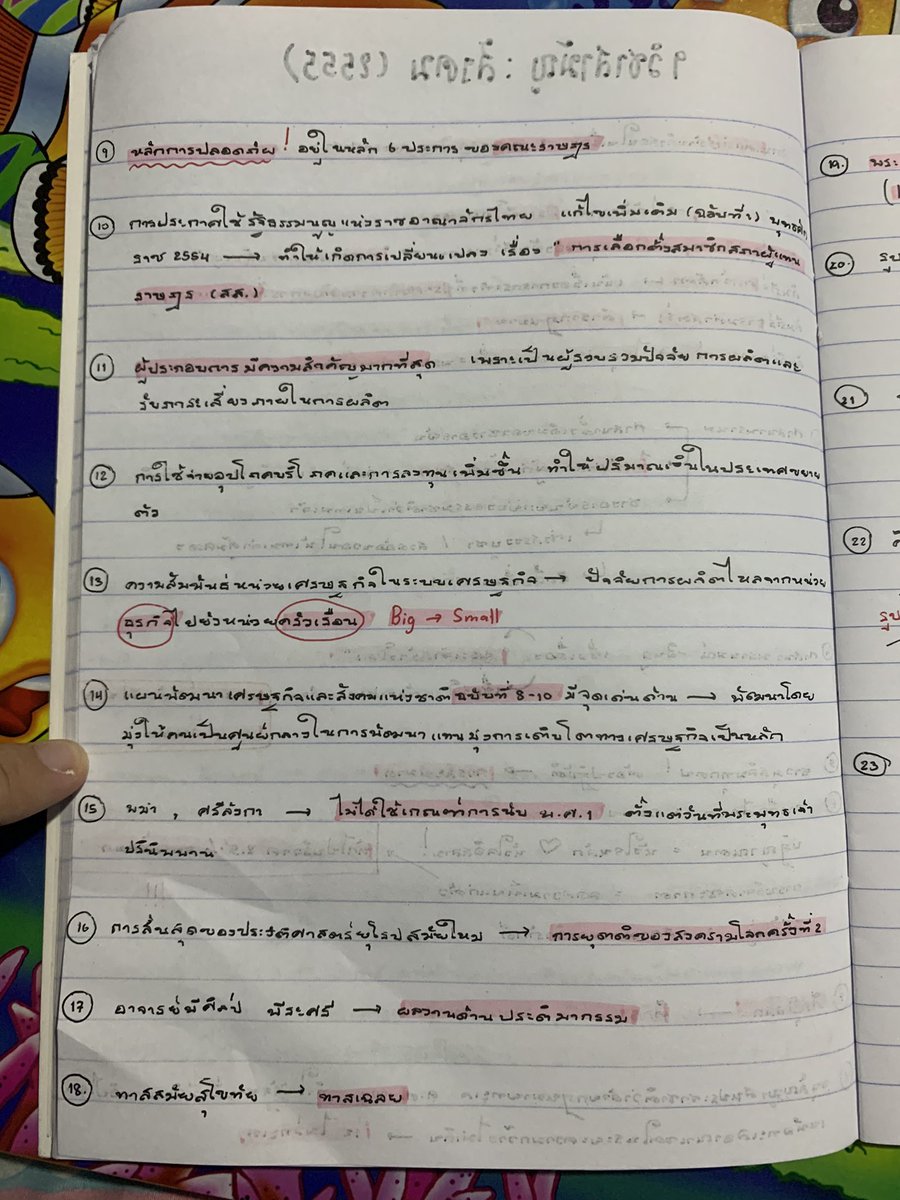 ⑨ หลักการปลอดภัย ! อยู่ในหลัก 6 ประการ ของคณะราษฎร
⑩ การประกาศใช้รัฐธรรมนูญแห่งราชอาณาจักรไทย แก้ไขเพิ่มเติม (ฉบับที่1) พุทธศัก
ราช 2554 → ทำให้เกิดการเปลี่ยนแปลง เรื่อง "การเลือกตั้งสมาชิกสภาผู้แทน
ราษฎร (สส.)
⑪ ผู้ประกอบการ มีความสำคัญมากที่สุด เพราะเป็นผู้รวบรวมปัจจัยการผลิตและ
รับภาระเสี่ยงภายในการผลิต
⑫ การใช้จ่ายอุปโภคบริโภคและการลงทุนเพิ่มขึ้น ทำให้ปริมาณเงินในประเทศขยาย
ตัว
⑬ ความสัมพันธ์หน่วยเศรษฐกิจในระบบเศรษฐกิจ → ปัจจัยการผลิตไหลจากหน่วย
ธุรกิจไปยังหน่วยครัวเรือน Big → Small
⑭ แผนพัฒนาเศรษฐกิจและสังคมแห่งชาติ ฉบับที่ 8-10 มีจุดเด่นด้าน → พัฒนาโดย
มุ่งให้คนเป็นศูนย์กลางในการพัฒนา แทนมุ่งการเติบโตทางเศรษฐกิจเป็นหลัก
⑮ พม่า , ศรีลังกา → ไม่ได้ใช้เกณฑ์การนับ พ.ศ.1 ตั้งแต่วันที่พระพุทธเจ้า
ปรินิพพาน
⑯ การสิ้นสุดของประวัติศาสตร์ยุโรปสมัยใหม่ → การยุตติของสงครามโลกครั้งที่ 2
⑰ อาจารย์ศิลป์ พีระศรี → ผลงานด้านประติมากรรม
⑱. ทาสสมัยสุโขทัย → ทาสเฉลย
⑲. พระ
⑳. รูป
㉑
㉒
รูป
㉓